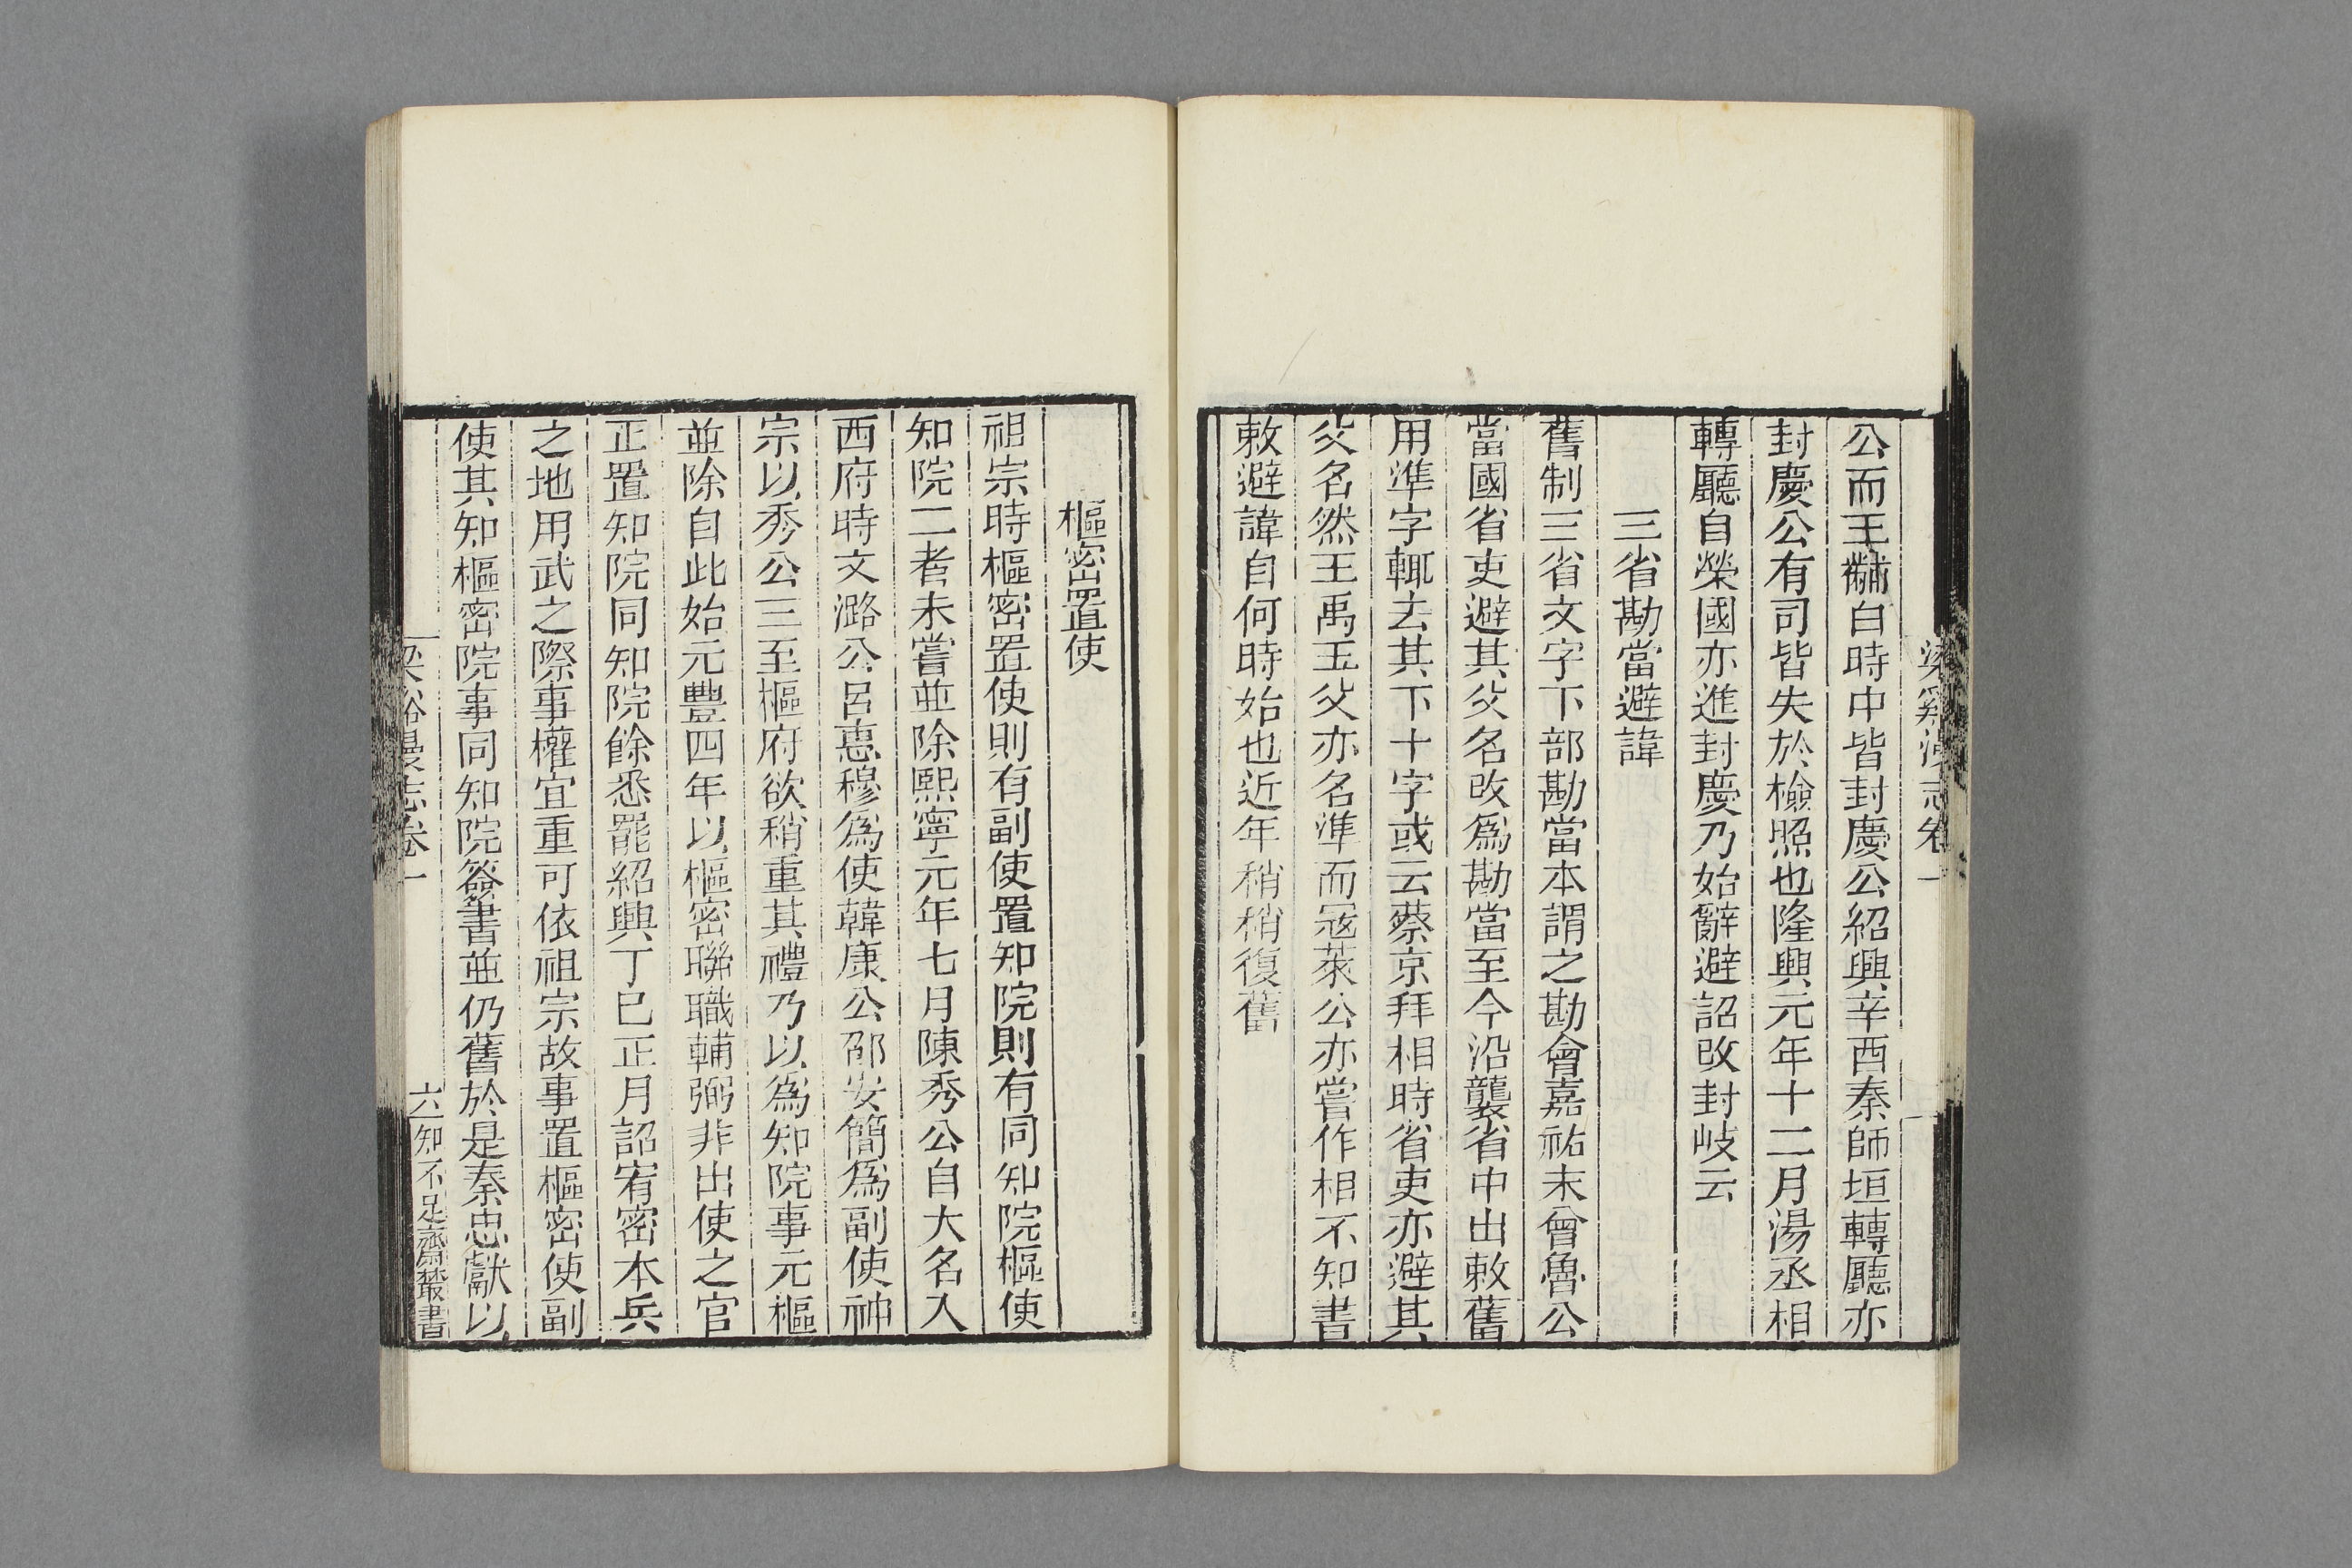 梁谿漫志卷一
公而王黼白時中皆封慶公紹興辛酉秦師垣轉廳亦
封慶公有司皆失於檢照也隆興元年十二月湯丞相
轉廳自榮國亦進封慶乃始辭避詔改封岐云
三省勘當避諱
舊制三省文字下部勘當本謂之勘會嘉祐末曾魯公
當國省吏避其父名改爲勘當至今沿襲省中出敕舊
用準字輒去其下十字或云蔡京拜相時省吏亦避其
父名然王禹玉父亦名準而寇萊公亦嘗作相不知書
敕避諱自何時始也近年稍稍復舊
樞密置使
祖宗時樞密置使則有副使置知院則有同知院樞使
知院二者未嘗並除熙寧元年七月陳秀公自大名入
西府時文潞公呂惠穆爲使韓康公邵安簡爲副使神
宗以秀公三至樞府欲稍重其禮乃以爲知院事元樞
並除自此始元豐四年以樞密聯職輔弼非出使之官
正置知院同知院餘悉罷紹興丁巳正月詔宥密本兵
之地用武之際事權宜重可依祖宗故事置樞密使副
使其知樞密院事同知院簽書並仍舊於是秦忠獻以
梁谿漫志卷一 六 知不足齋叢書